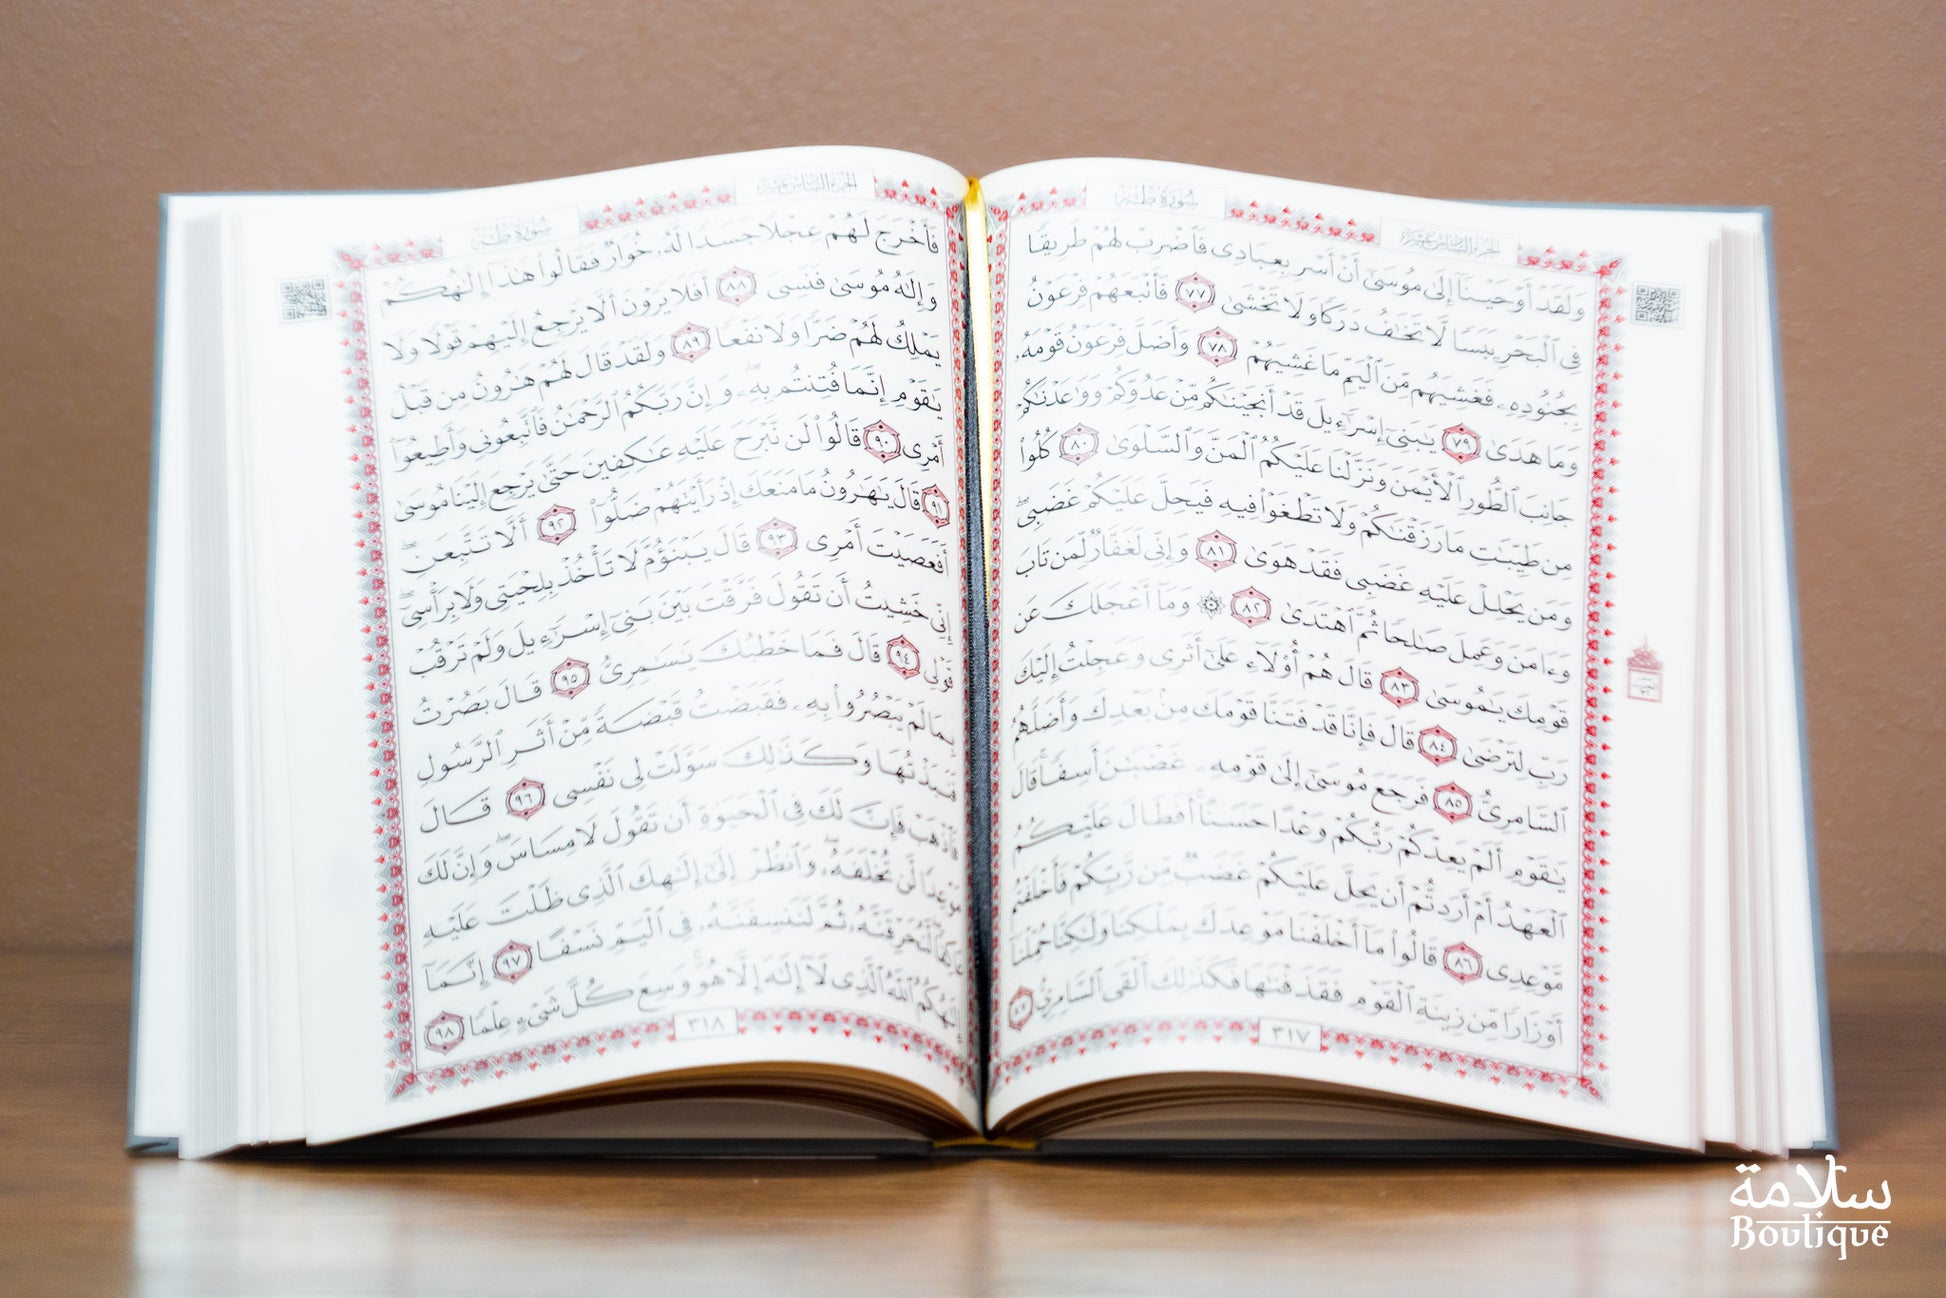 سُورَةُ طه
الجزء السادس عشر
وَلَقَدْ أَوْحَيْنَآ إِلَىٰ مُوسَىٰٓ أَنْ أَسْرِ بِعِبَادِى فَٱضْرِبْ لَهُمْ طَرِيقًا
فِى ٱلْبَحْرِ يَبَسًا لَّا تَخَٰفُ دَرَكًا وَلَا تَخْشَىٰ ٧٧ فَأَتْبَعَهُمْ فِرْعَوْنُ
بِجُنُودِهِۦ فَغَشِيَهُم مِّنَ ٱلْيَمِّ مَا غَشِيَهُمْ ٧٨ وَأَضَلَّ فِرْعَوْنُ قَوْمَهُۥ
وَمَا هَدَىٰ ٧٩ يَٰبَنِىٓ إِسْرَٰٓءِيلَ قَدْ أَنجَيْنَٰكُم مِّنْ عَدُوِّكُمْ وَوَٰعَدْنَٰكُمْ
جَانِبَ ٱلطُّورِ ٱلْأَيْمَنَ وَنَزَّلْنَا عَلَيْكُمُ ٱلْمَنَّ وَٱلسَّلْوَىٰ ٨٠ كُلُوا۟
مِن طَيِّبَٰتِ مَا رَزَقْنَٰكُمْ وَلَا تَطْغَوْا۟ فِيهِ فَيَحِلَّ عَلَيْكُمْ غَضَبِى ۖ
وَمَن يَحْلِلْ عَلَيْهِ غَضَبِى فَقَدْ هَوَىٰ ٨١ وَإِنِّى لَغَفَّارٌ لِّمَن تَابَ
وَءَامَنَ وَعَمِلَ صَٰلِحًا ثُمَّ ٱهْتَدَىٰ ٨٢ ۞ وَمَآ أَعْجَلَكَ عَن
قَوْمِكَ يَٰمُوسَىٰ ٨٣ قَالَ هُمْ أُو۟لَآءِ عَلَىٰٓ أَثَرِى وَعَجِلْتُ إِلَيْكَ
رَبِّ لِتَرْضَىٰ ٨٤ قَالَ فَإِنَّا قَدْ فَتَنَّا قَوْمَكَ مِنۢ بَعْدِكَ وَأَضَلَّهُمُ
ٱلسَّامِرِىُّ ٨٥ فَرَجَعَ مُوسَىٰٓ إِلَىٰ قَوْمِهِۦ غَضْبَٰنَ أَسِفًا ۚ قَالَ
يَٰقَوْمِ أَلَمْ يَعِدْكُمْ رَبُّكُمْ وَعْدًا حَسَنًا ۚ أَفَطَالَ عَلَيْكُمُ
ٱلْعَهْدُ أَمْ أَرَدتُّمْ أَن يَحِلَّ عَلَيْكُمْ غَضَبٌ مِّن رَّبِّكُمْ فَأَخْلَفْتُم
مَّوْعِدِى ٨٦ قَالُوا۟ مَآ أَخْلَفْنَا مَوْعِدَكَ بِمَلْكِنَا وَلَٰكِنَّا حُمِّلْنَآ
أَوْزَارًا مِّن زِينَةِ ٱلْقَوْمِ فَقَذَفْنَٰهَا فَكَذَٰلِكَ أَلْقَى ٱلسَّامِرِىُّ ٨٧
٣١٧
الجزء السادس عشر
سُورَةُ طه
فَأَخْرَجَ لَهُمْ عِجْلًا جَسَدًا لَّهُۥ خُوَارٌ فَقَالُوا۟ هَٰذَآ إِلَٰهُكُمْ
وَإِلَٰهُ مُوسَىٰ فَنَسِىَ ٨٨ أَفَلَا يَرَوْنَ أَلَّا يَرْجِعُ إِلَيْهِمْ قَوْلًا وَلَا
يَمْلِكُ لَهُمْ ضَرًّا وَلَا نَفْعًا ٨٩ وَلَقَدْ قَالَ لَهُمْ هَٰرُونُ مِن قَبْلُ
يَٰقَوْمِ إِنَّمَا فُتِنتُم بِهِۦ ۖ وَإِنَّ رَبَّكُمُ ٱلرَّحْمَٰنُ فَٱتَّبِعُونِى وَأَطِيعُوٓا۟
أَمْرِى ٩٠ قَالُوا۟ لَن نَّبْرَحَ عَلَيْهِ عَٰكِفِينَ حَتَّىٰ يَرْجِعَ إِلَيْنَا مُوسَىٰ
٩١ قَالَ يَٰهَٰرُونُ مَا مَنَعَكَ إِذْ رَأَيْتَهُمْ ضَلُّوٓا۟ ٩٢ أَلَّا تَتَّبِعَنِ ۖ
أَفَعَصَيْتَ أَمْرِى ٩٣ قَالَ يَبْنَؤُمَّ لَا تَأْخُذْ بِلِحْيَتِى وَلَا بِرَأْسِىٓ ۖ
إِنِّى خَشِيتُ أَن تَقُولَ فَرَّقْتَ بَيْنَ بَنِىٓ إِسْرَٰٓءِيلَ وَلَمْ تَرْقُبْ
قَوْلِى ٩٤ قَالَ فَمَا خَطْبُكَ يَٰسَٰمِرِىُّ ٩٥ قَالَ بَصُرْتُ
بِمَا لَمْ يَبْصُرُوا۟ بِهِۦ فَقَبَضْتُ قَبْضَةً مِّنْ أَثَرِ ٱلرَّسُولِ
فَنَبَذْتُهَا وَكَذَٰلِكَ سَوَّلَتْ لِى نَفْسِى ٩٦ قَالَ
فَٱذْهَبْ فَإِنَّ لَكَ فِى ٱلْحَيَوٰةِ أَن تَقُولَ لَا مِسَاسَ ۖ وَإِنَّ لَكَ
مَوْعِدًا لَّن تُخْلَفَهُۥ ۖ وَٱنظُرْ إِلَىٰٓ إِلَٰهِكَ ٱلَّذِى ظَلْتَ عَلَيْهِ
عَاكِفًا ۖ لَّنُحَرِّقَنَّهُۥ ثُمَّ لَنَنسِفَنَّهُۥ فِى ٱلْيَمِّ نَسْفًا ٩٧ إِنَّمَآ
إِلَٰهُكُمُ ٱللَّهُ ٱلَّذِى لَآ إِلَٰهَ إِلَّا هُوَ ۚ وَسِعَ كُلَّ شَىْءٍ عِلْمًا ٩٨
٣١٨
سلامة
Boutique